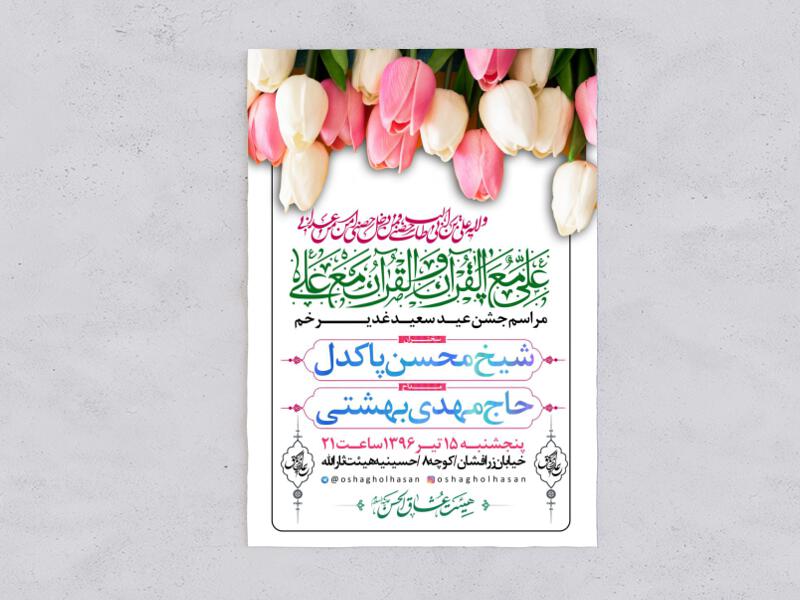 ولایة علی بن ابی طالب حصنی فمن دخل حصنی امن من عذابی
علی مع القرآن و القرآن مع علی
مراسم جشن عید سعید غدیر خم
سخنران
شیخ محسن پاکدل
مداح
حاج مهدی بهشتی
پنجشنبه ۱۵ تیر ۱۳۹۶ ساعت ۲۱
خیابان زرافشان / کوچه ۸ / حسینیه هیئت ثارالله
@oshagholhasan oshagholhasan
هیئت عشاق الحسن